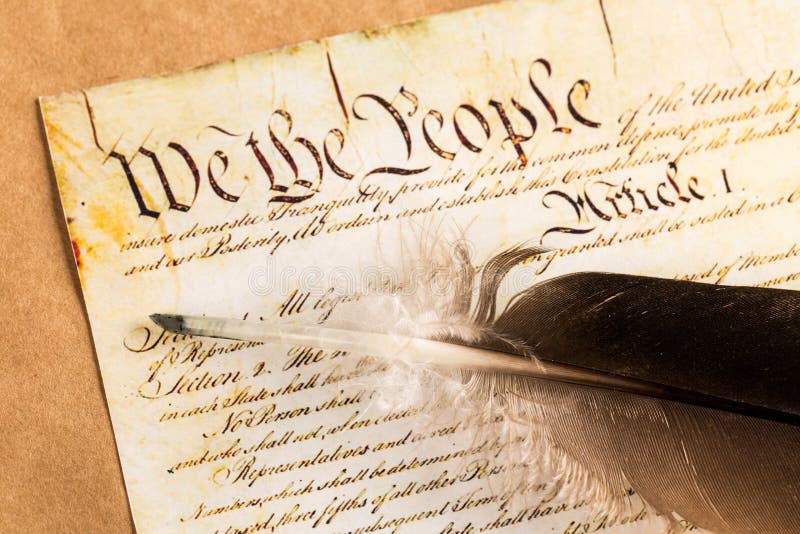 We the People
of the United
insure domestic Tranquility, provide for the common defence, promote the
and our Posterity, do ordain and establish this Constitution for the United
Article. I.
granted shall be vested in a
Section. 1. All
of Represen
Section. 2. The
in each State shall have the
No Person shall
and who shall not, when elected
Representatives and
Numbers, which shall be determined by
three fifths of all other Persons
subsequent Term of ten
State shall have
dreamstime